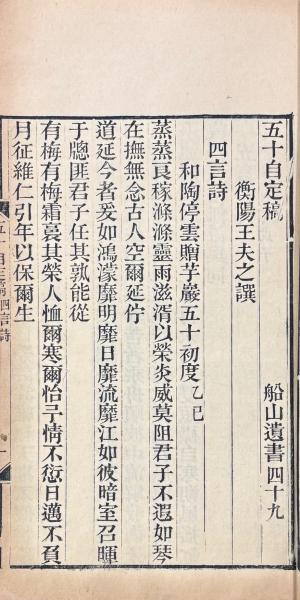 五十自定稿　船山遺書四十九
衡陽王夫之譔
四言詩
和陶停雲贈芋巖五十初度乙巳
蒸蒸良稼滌滌靈雨滋湑以榮炎威莫阻君子不遐如琴
在撫無念古人空爾延佇
道延今者爰如鴻蒙靡明靡日靡流靡江如彼暗室召暉
于牕匪君子任其孰能從
有梅有梅霜裛其榮人恤爾寒爾怡予情不愆日邁不負
月征維仁引年以保爾生
四言詩